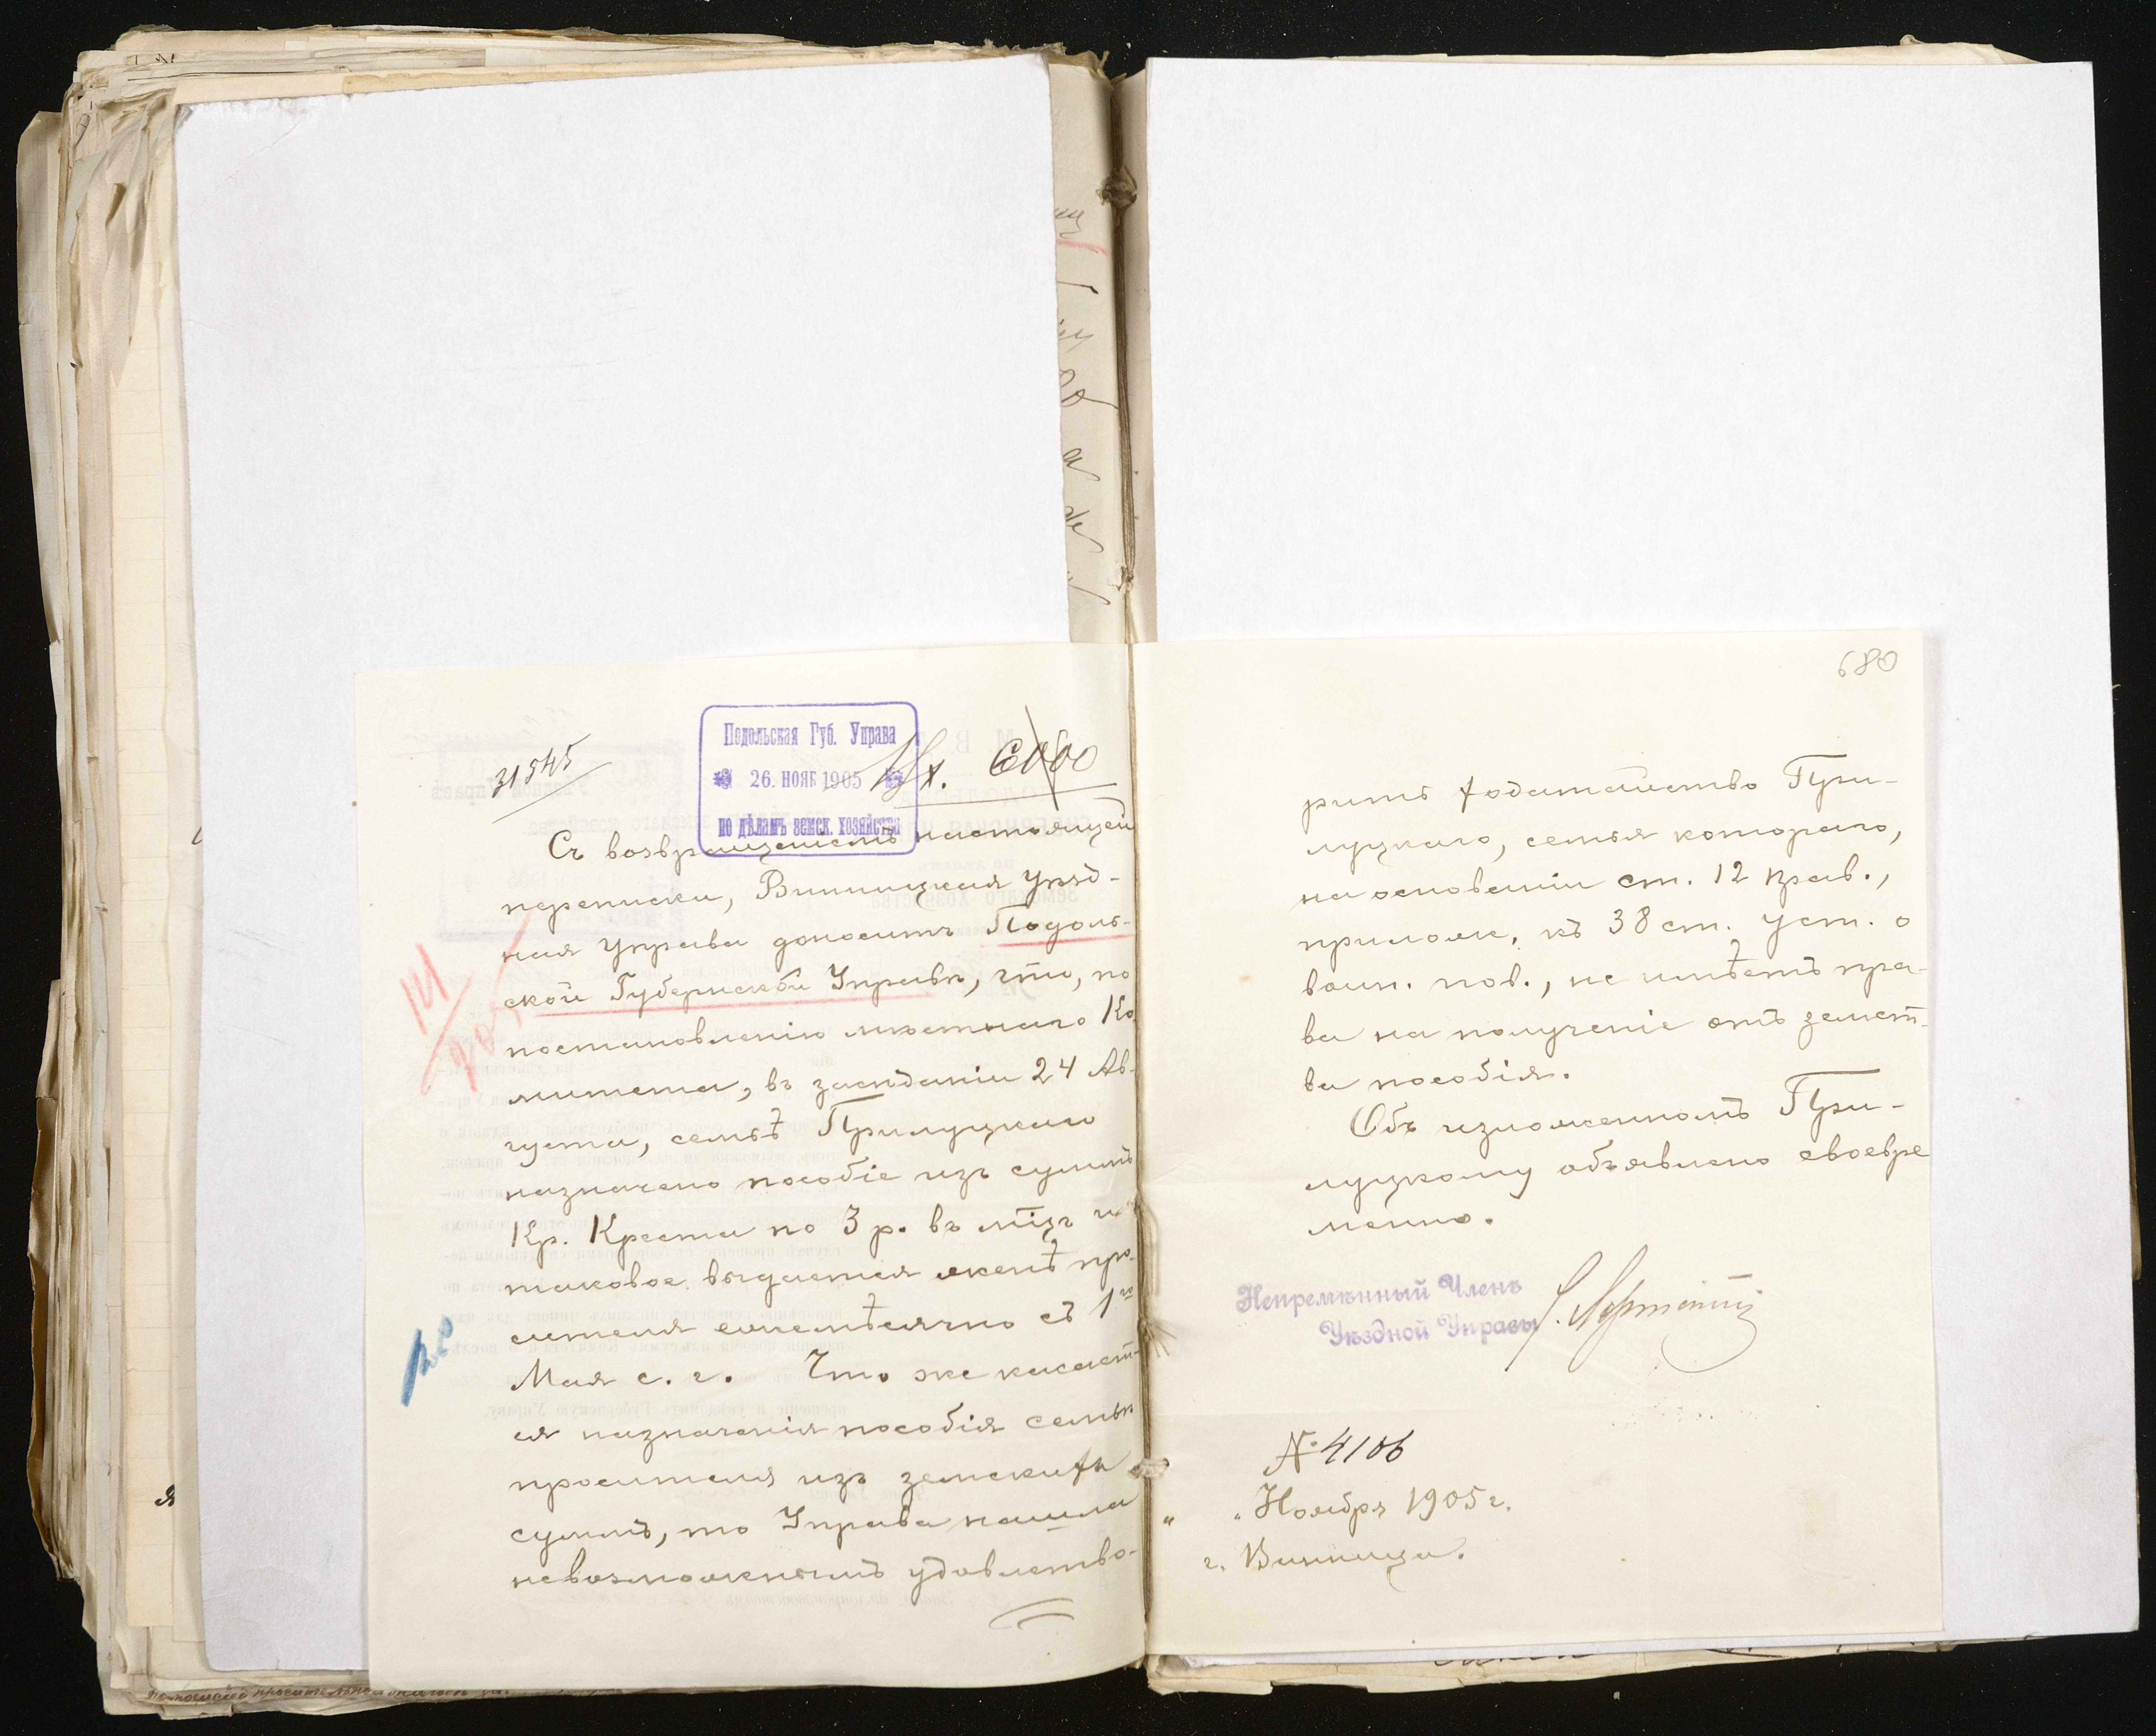 680
31545
Подольская Губ. Управа
26. НОЯБ 1905
по дѣламъ земск. хозяйства
Вх.
Съ возвращеніемъ настоящей
переписки, Винницкая Уѣзд-
ная Управа доноситъ Подоль-
ской Губернской Управѣ, что, по
постановленію мѣстнаго Ко-
митета, въ засѣданіи 24 Ав-
густа, семьѣ Прилуцкаго
назначено пособіе изъ суммъ
Кр. Креста по 3 р. въ мѣц и
таковое выдается женѣ про-
сителя ежемѣсячно съ 1го
Мая с. г. Что же касает-
ся назначенія пособія семьѣ
просителя изъ земскихъ
суммъ, то Управа нашла
невозможнымъ удовлетво-
рить ходатайство При-
луцкаго, семья котораго,
на основаніи ст. 12 прав.,
прилож. къ 38 ст. Уст. о
воин. пов., не имѣетъ пра-
ва на полученіе отъ земст-
ва пособія.
Объ изложенномъ При-
луцкому объявлено своевре
менно.
Непремѣнный Членъ
Уѣздной Управы
№ 4106
" " Ноября 1905 г.
г. Винница.